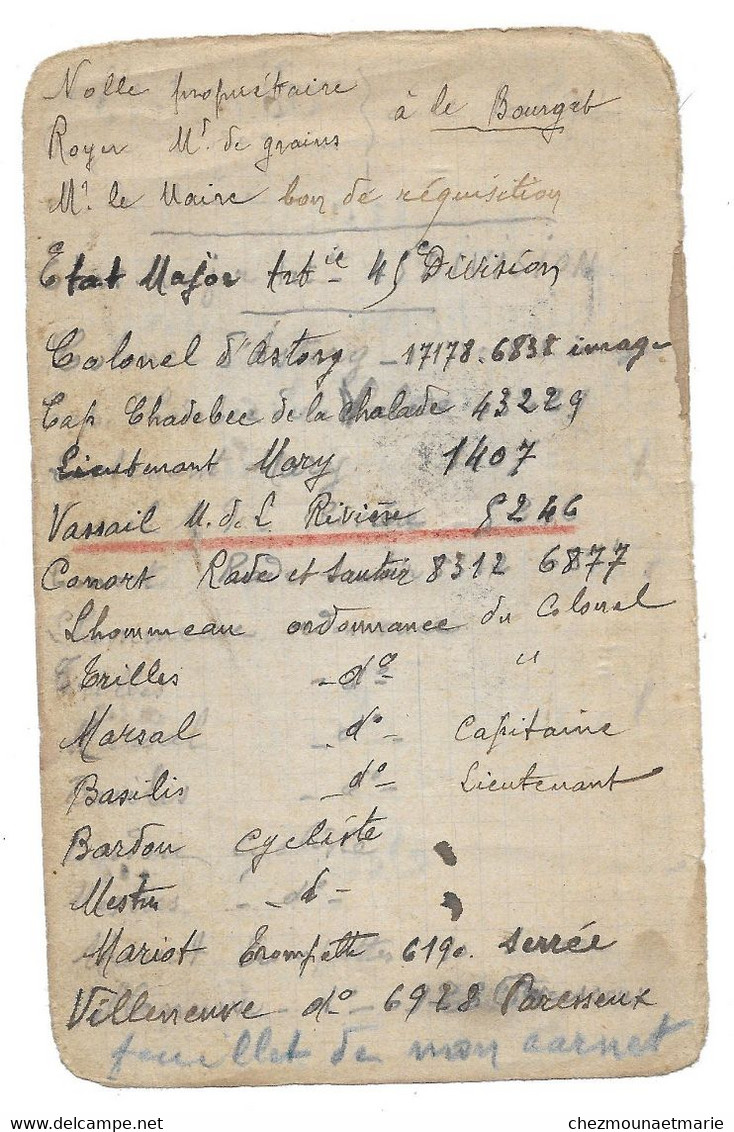 Nolle propriétaire
Royer Md de grains } à le Bourget
Mr le Maire bon de réquisition
Etat Major Artie 45e Division
Colonel d'Astorg - 17178. 6838 image
Cap Chadebec de la Chalade 43229
Lieutenant Mary 1407
Vassail M. de L Rivière 5246
Canort Rade et Sautoir 8312 6877
Lhommeau ordonnance du Colonel
Trilles - do - "
Marsal - do - Capitaine
Basilis - do - Lieutenant
Bardou Cycliste
Mestre - d -
Mariot Trompette 6190. Serrée
Villeneuve - do - 6928 Paresseux
feuillet de mon carnet
chezmounaetmarie.com